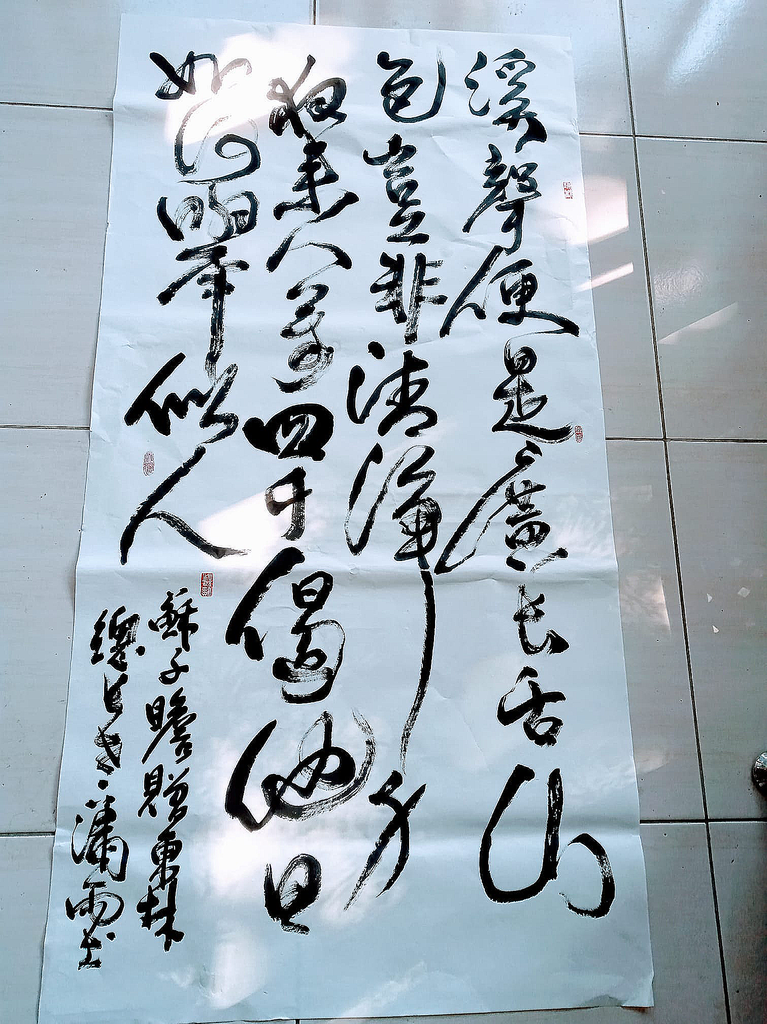 溪聲便是廣長舌山
色豈非清淨身
夜來八萬四千偈他日
如何舉似人
蘇子瞻贈東林
總長老瀟雨書